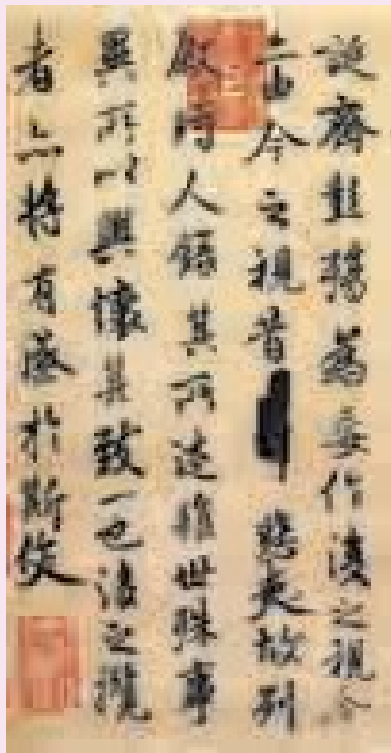 誕齊彭殤為妄作後之視今
亦由今之視昔悲夫故列
敘時人錄其所述雖世殊事
異所以興懷其致一也後之攬
者亦將有感於斯文